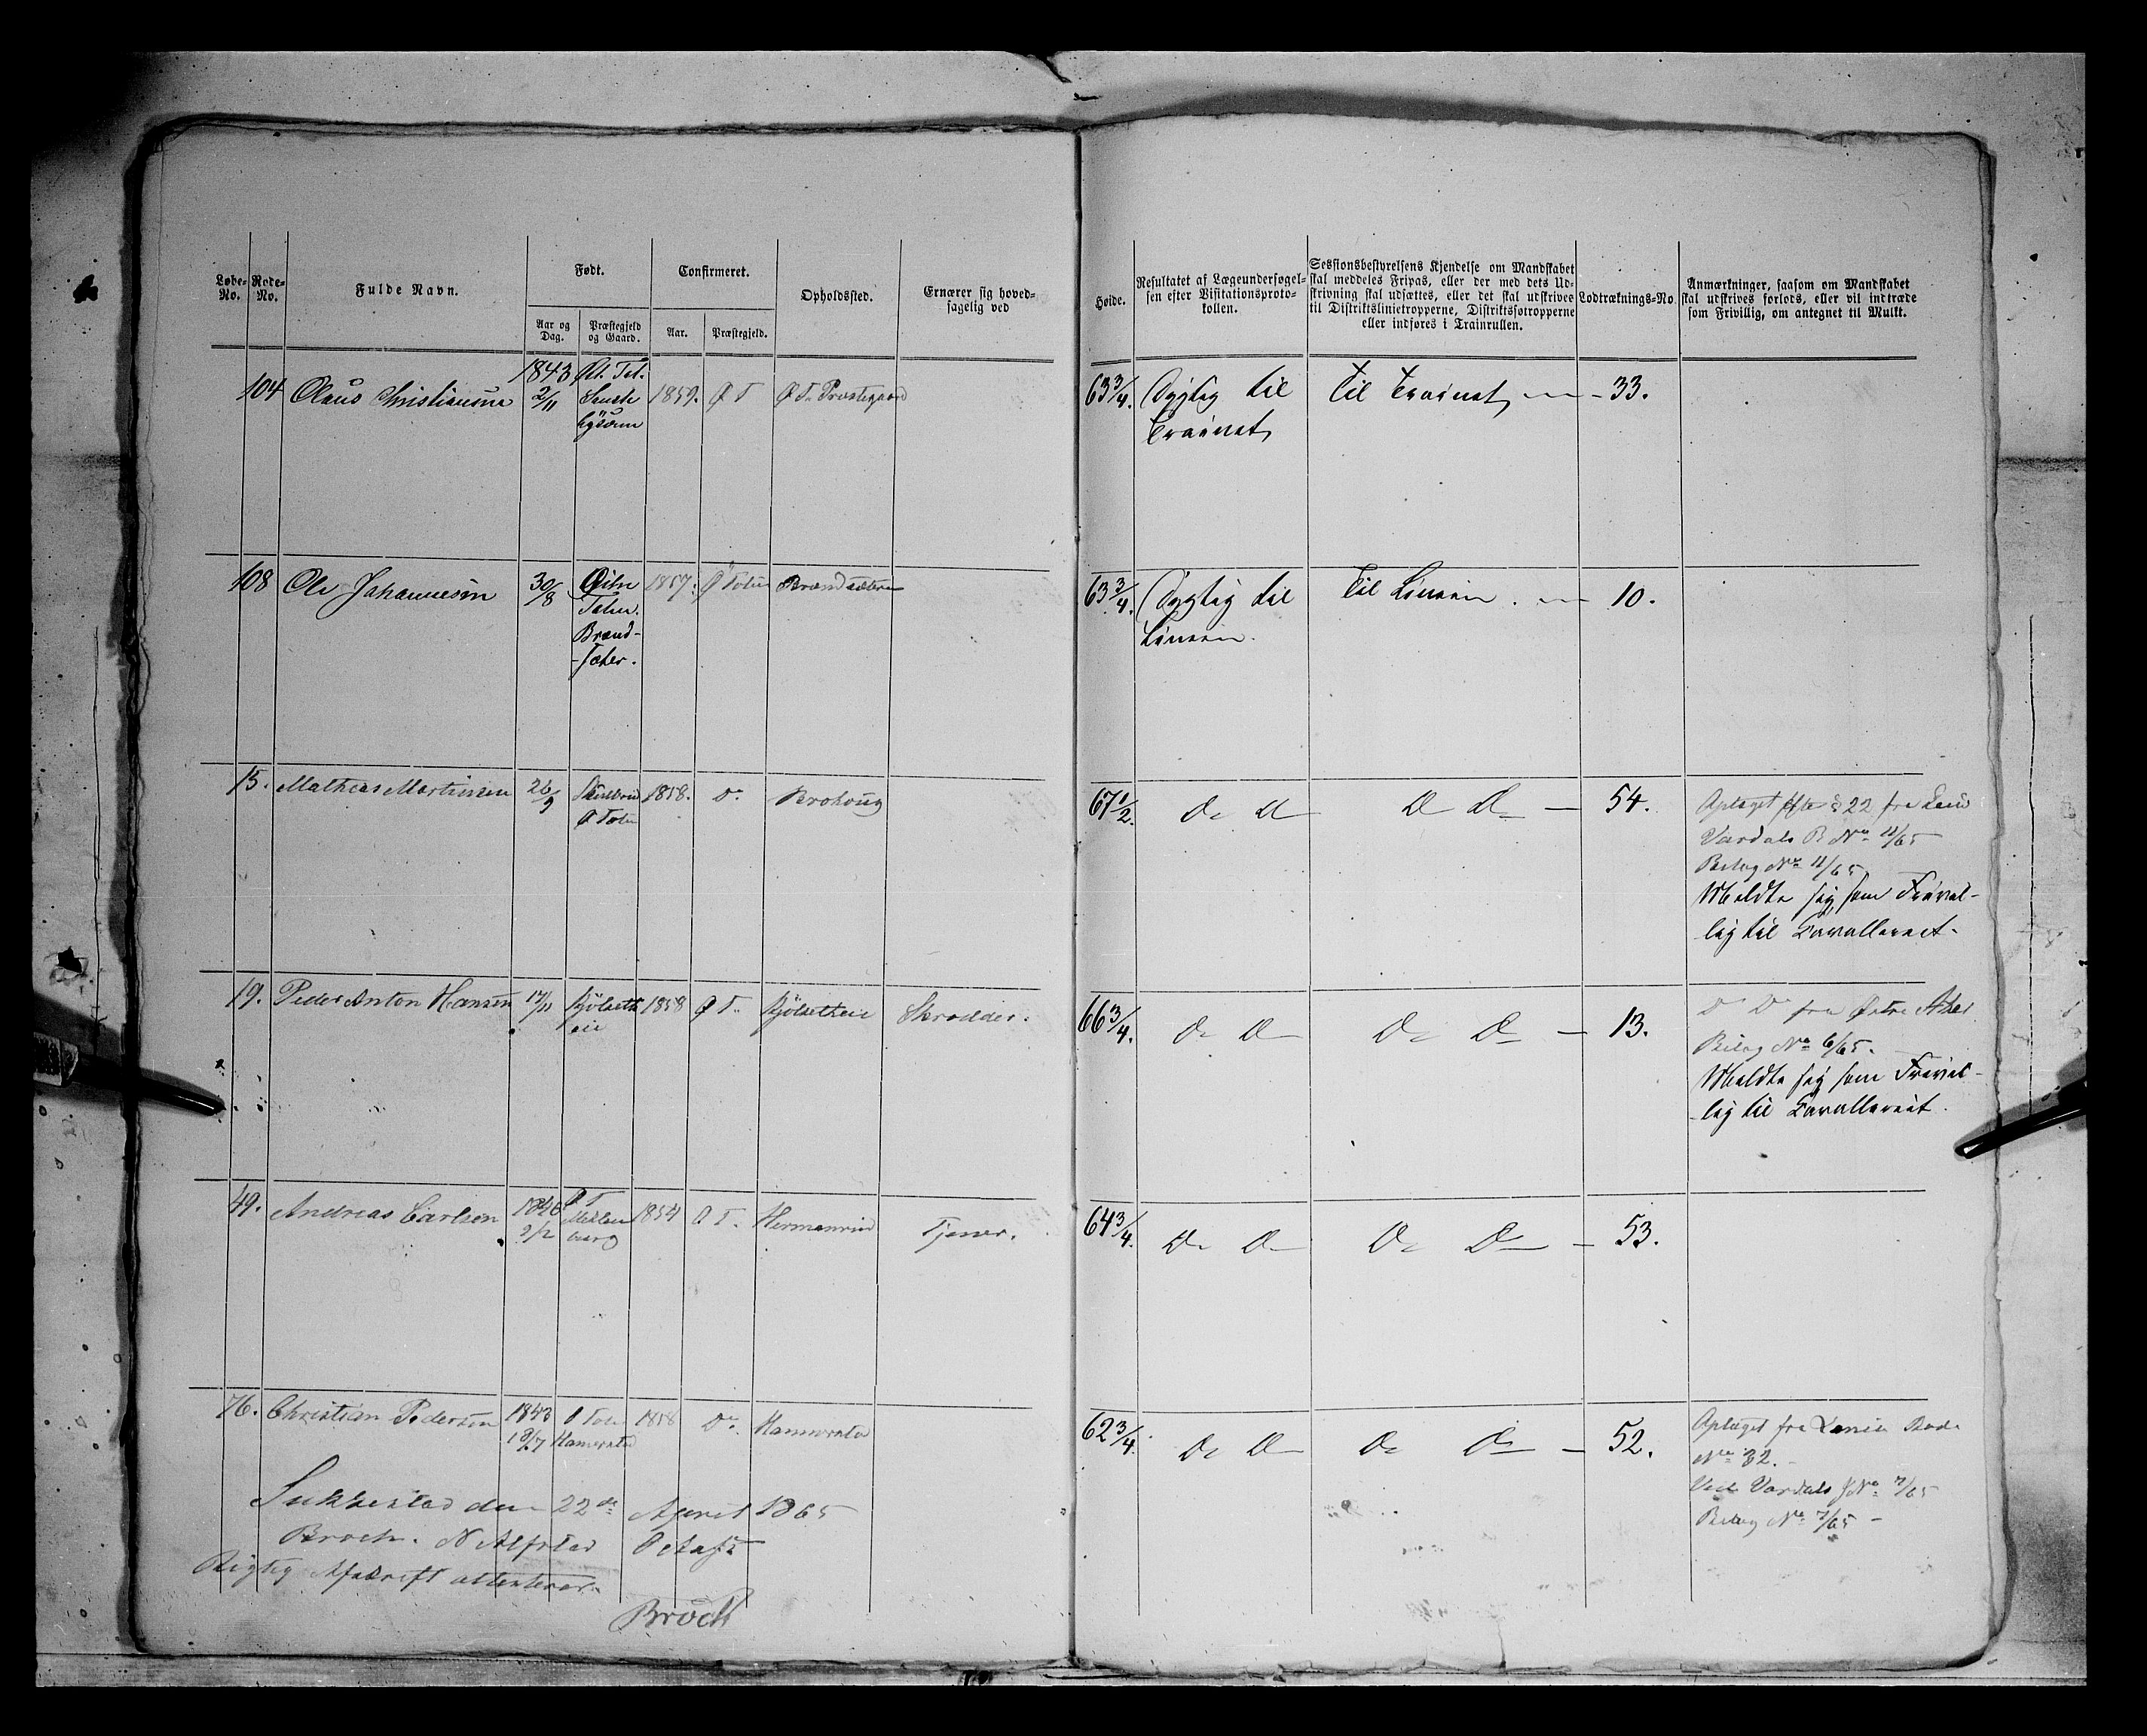 Løbe-No.
Rode-No.
Fulde Navn.
Født.
Aar og Dag.
Præstegjeld og Gaard.
Confirmeret.
Aar.
Præstegjeld.
Opholdssted.
Ernærer sig hoved-
sagelig ved
Høide.
Resultatet af Lægeundersøgel-
sen efter Visitationsproto-
kollen.
Sessionsbestyrelsens Kjendelse om Mandskabet
skal meddeles Fripas, eller der med dets Ud-
skrivning skal udsættes, eller det skal udskrives
til Distriktslinietropperne, Distriktsfotropperne
eller indføres i Trainrullen.
Lodtræknings-No.
Anmærkninger, saasom om Mandskabet
skal udskrives forlods, eller vil indtræde
som Frivillig, om antegnet til Mulkt.
104 Olaus Christiansen 1843 2/11 1859. Ø T Ø T. Præstegaard
63 3/4. Dygtig til Trainet Til Trainet 33.
108 Ole Johannesen 30/8 Østre Toten. Brænd-sæter. 1857. Ø Toten Brændsæteren
63 3/4. Dygtig til Linien. Til Linien. 10.
15. Mathias Martinsen 26/9 Ø Toten 1858. Do Brohoug
67 1/2. Do Do Do Do 54.
Optaget efter § 22 fra
Vardals R No 11/65
Bilag No 11/65
Meldte sig som Frivil-
lig til Cavalleriet.
19. Peder Anton Hansen 17/11 Kjølseth eie 1858 Ø T. Kjølsetheie Skrædder.
66 3/4. Do Do Do Do 13.
Do Do fra Østre Aker
Bilag No 6/65.
Meldte sig som Frivil-
lig til Cavalleriet.
49. Andreas Carlsen 1840 2/2 Ø T 1854 Ø T. Hermanrud Tjener.
64 3/4. Do Do Do Do 53.
76. Christian Pedersen 1843 18/7 Ø Toten Hammerstad 1858 Do Hammerstad
62 3/4. Do Do Do Do 52.
Optaget fra Lenie Rode
No 32.
Vide Vardals No 7/65
Bilag No 7/65
Sukkestad den 22de April 1865
Broch. N Alfstad
Rigtig Afskrift attesterer
Broch